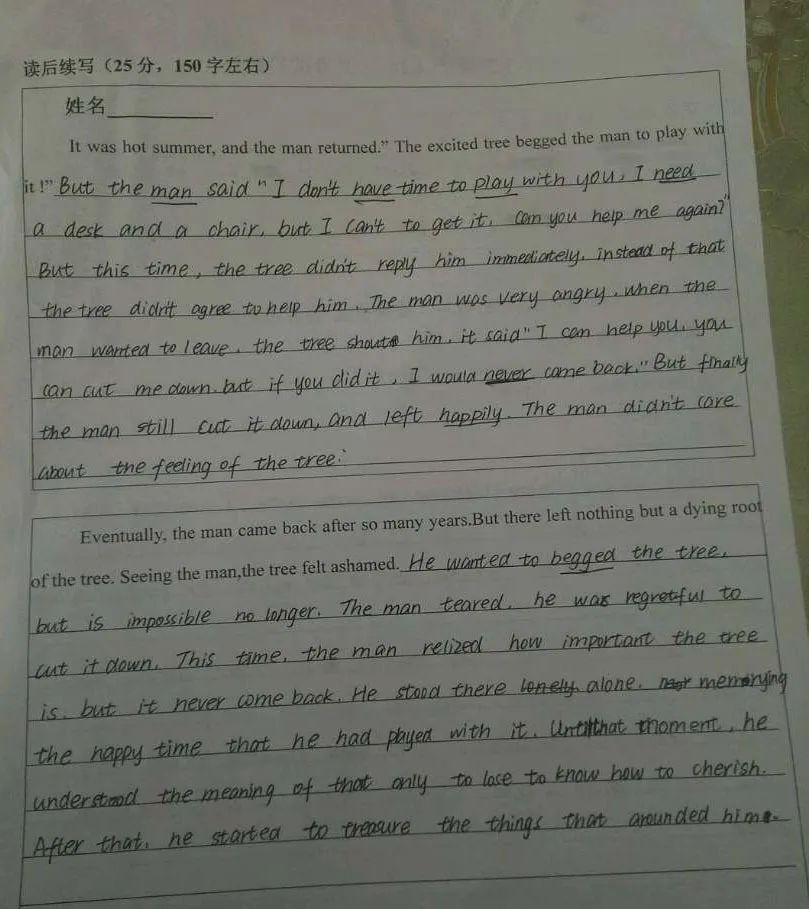 读后续写（25 分，150 字左右）
姓名
It was hot summer, and the man returned.” The excited tree begged the man to play with
it !” But the man said " I don't have time to play with you, I need
a desk and a chair, but I can't to get it. Can you help me again?"
But this time, the tree didn't reply him immediately. instead of that
the tree didn't agree to help him. The man was very angry. when the
man wanted to leave. the tree shout him. it said " I can help you. you
can cut me down. but if you did it, I would never come back." But finally
the man still cut it down, and left happily. The man didn't care
about the feeling of the tree.
Eventually, the man came back after so many years.But there left nothing but a dying root
of the tree. Seeing the man,the tree felt ashamed. He wanted to begged the tree.
but is impossible no longer. The man teared. he was regretful to
cut it down. This time, the man relized how important the tree
is. but it never come back. He stood there lonely. alone. memorying
the happy time that he had played with it. Until that moment, he
understood the meaning of that only to lose to know how to cherish.
After that, he started to treasure the things that arounded him.